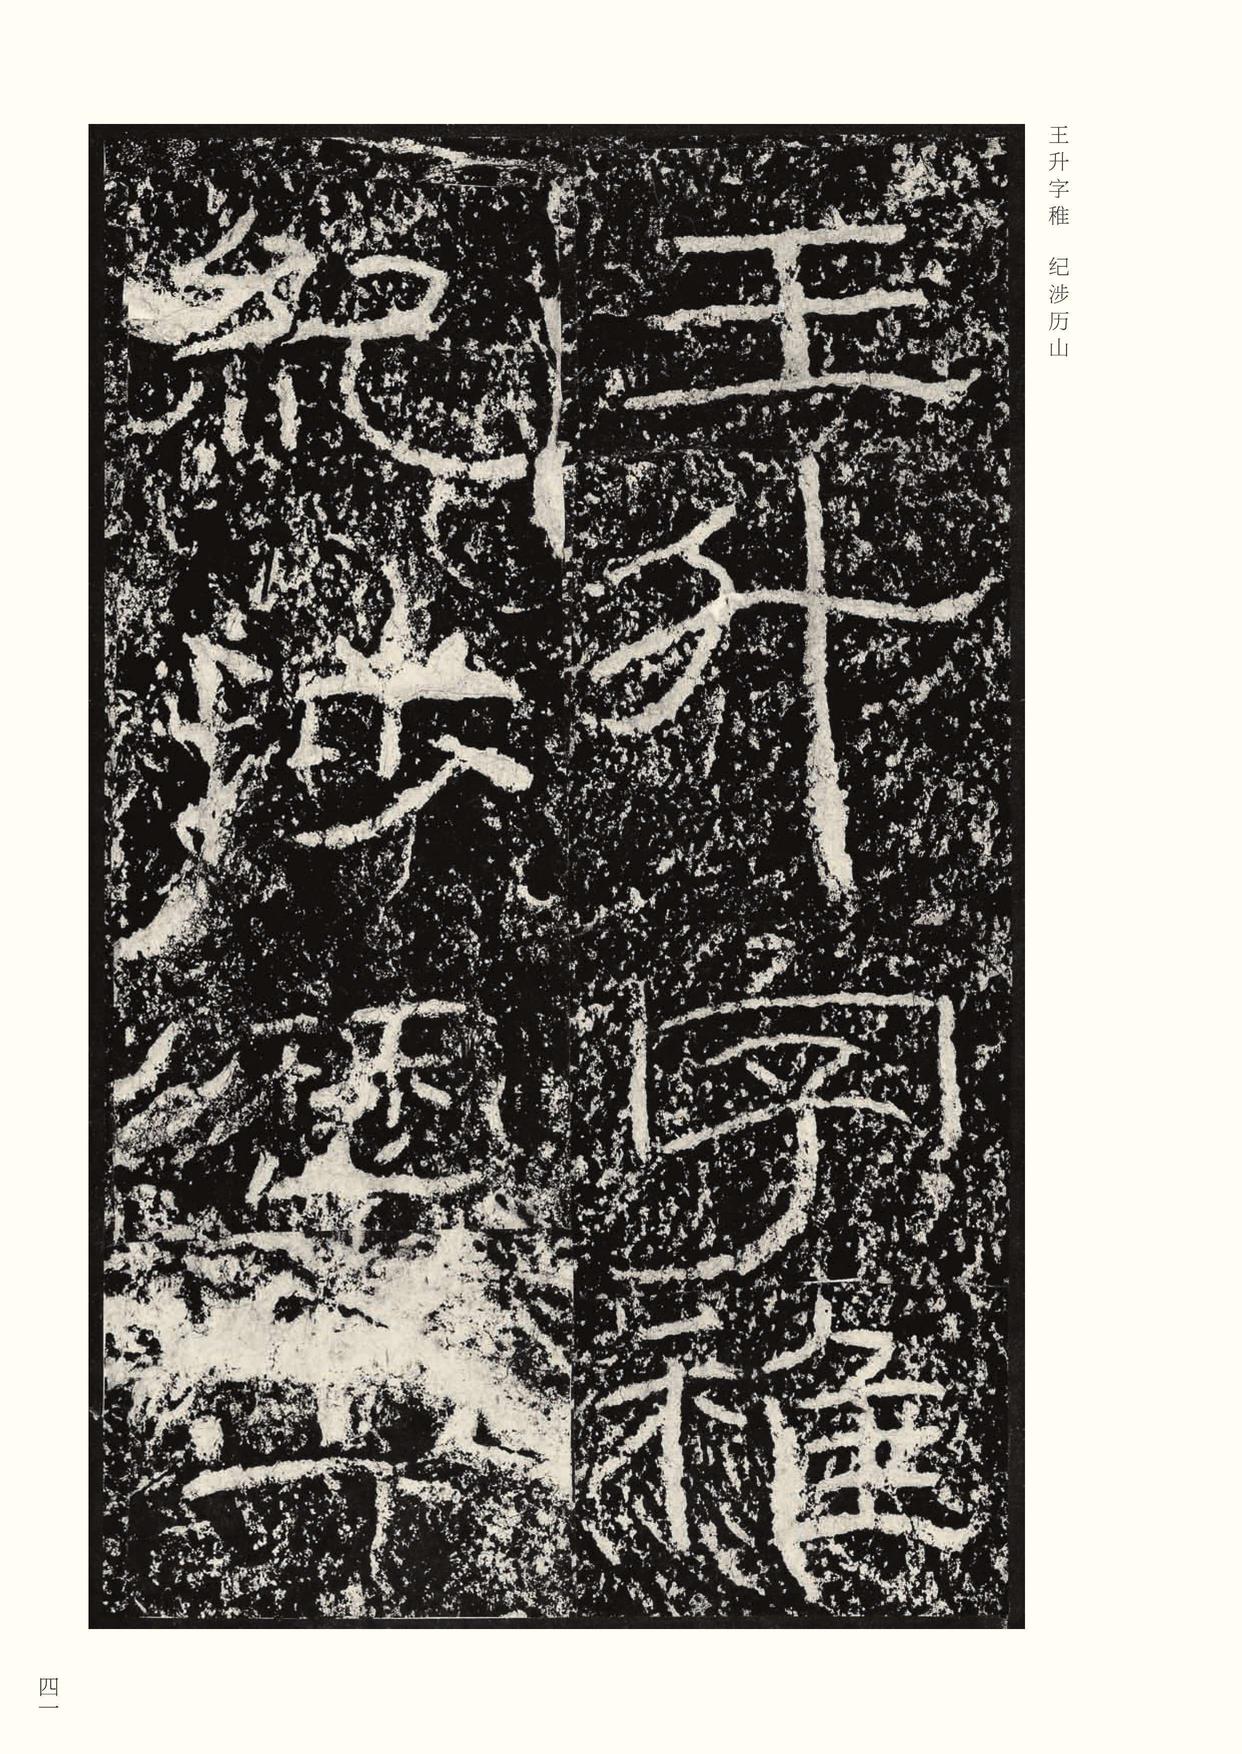 王升字稚　纪涉历山
王升字稚
紀涉
四一